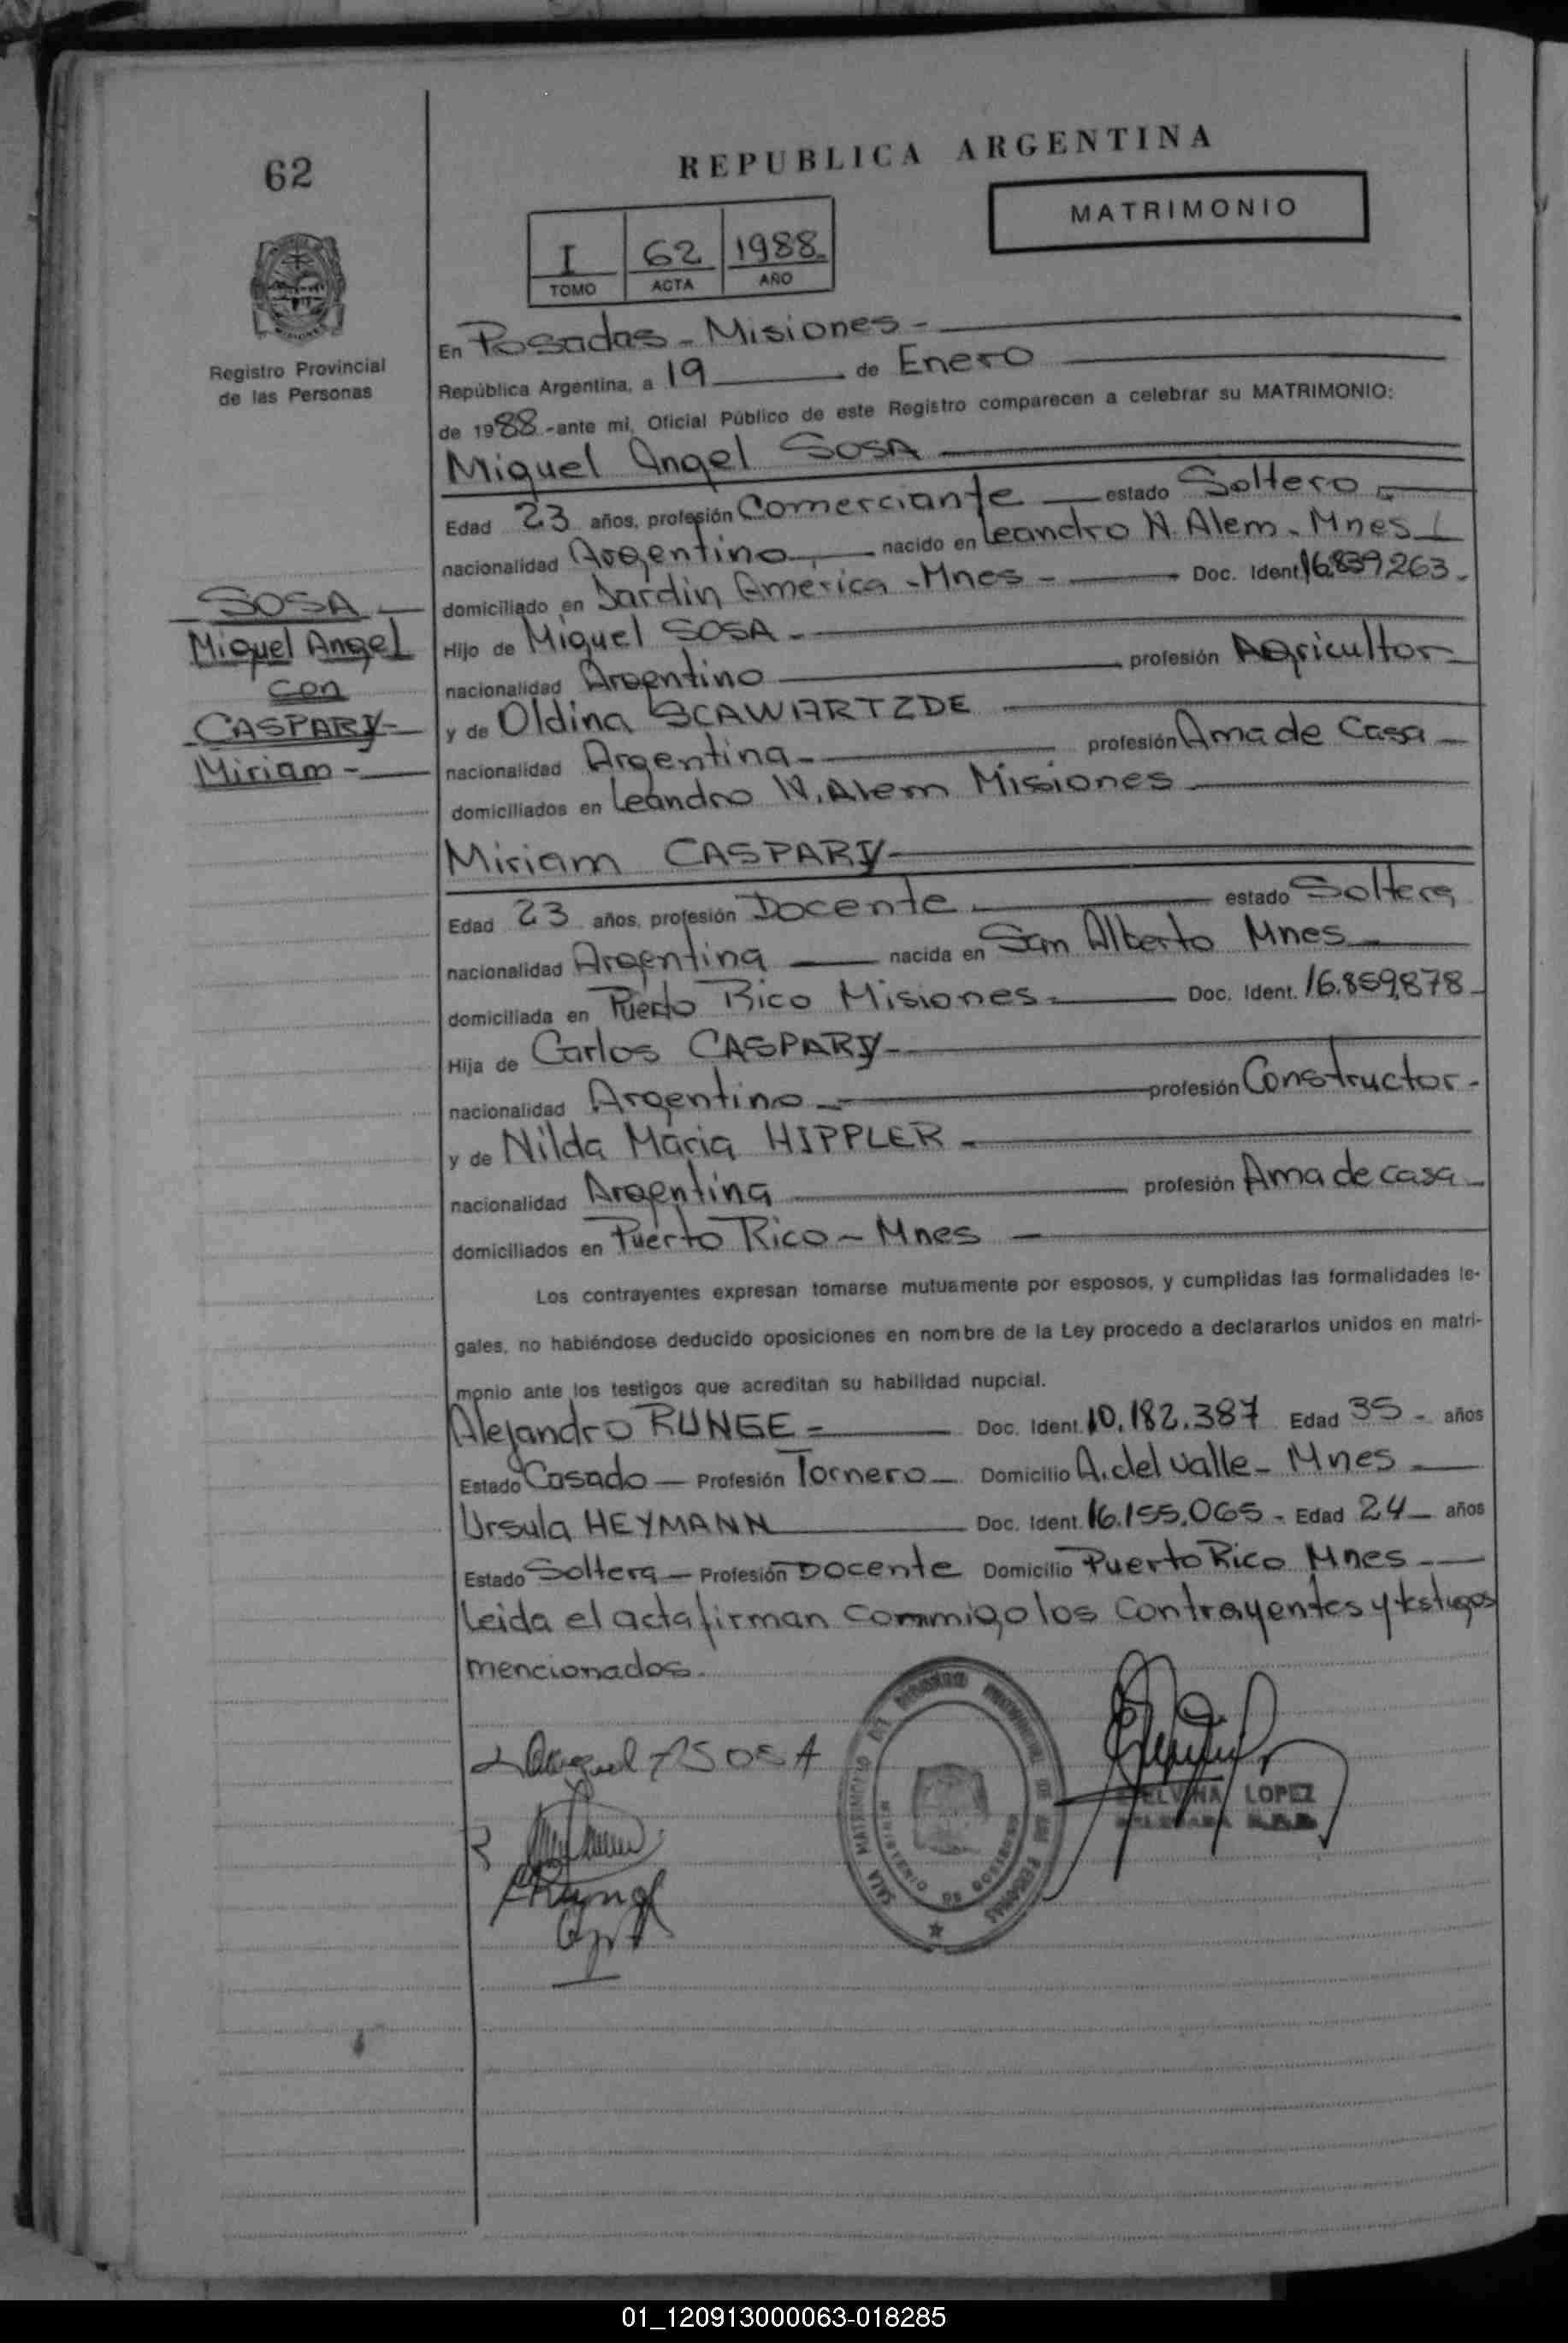 62
REPUBLICA ARGENTINA
MATRIMONIO
I 62 1988
TOMO ACTA AÑO
Registro Provincial
de las Personas
En Posadas - Misiones -
República Argentina, a 19 de Enero
de 1988 - ante mi, Oficial Público de este Registro comparecen a celebrar su MATRIMONIO:
Miguel Angel SOSA
Edad 23 años, profesión Comerciante estado Soltero
nacionalidad Argentino nacido en Leandro N. Alem - Mnes
domiciliado en Jardin America - Mnes - Doc. Ident. 16.839.263 -
Hijo de Miguel SOSA -
nacionalidad Argentino profesión Agricultor
y de Oldina SCAWARTZDE
nacionalidad Argentina - profesión Ama de Casa
domiciliados en Leandro N. Alem Misiones
SOSA
Miguel Angel
con
CASPARY -
Miriam -
Miriam CASPARY
Edad 23 años, profesión Docente estado Soltera
nacionalidad Argentina nacida en San Alberto Mnes
domiciliada en Puerto Rico Misiones - Doc. Ident. 16.859.878 -
Hija de Carlos CASPARY -
nacionalidad Argentino - profesión Constructor -
y de Nilda Maria HIPPLER -
nacionalidad Argentina profesión Ama de casa
domiciliados en Puerto Rico - Mnes
Los contrayentes expresan tomarse mutuamente por esposos, y cumplidas las formalidades le-
gales, no habiéndose deducido oposiciones en nombre de la Ley procedo a declararlos unidos en matri-
monio ante los testigos que acreditan su habilidad nupcial.
Alejandro RUNGE - Doc. Ident. 10.182.387 Edad 35 - años
Estado Casado - Profesión Tornero - Domicilio A. del valle - Mnes
Ursula HEYMANN Doc. Ident. 16.155.065 - Edad 24 años
Estado Soltera - Profesión Docente Domicilio Puerto Rico Mnes -
Leida el acta firman commigo los Contrayentes y testigos
mencionados.
SOSA
SALA MATRIMONIO DEL REGISTRO PROVINCIAL DE LAS PERSONAS
MINISTERIO DE GOBIERNO
LOPEZ
01_120913000063-018285